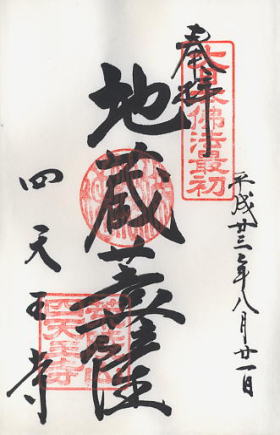 平成廿三年八月廿一日
奉拝
大日本佛法最初
地蔵菩薩
四天王寺
四天王寺